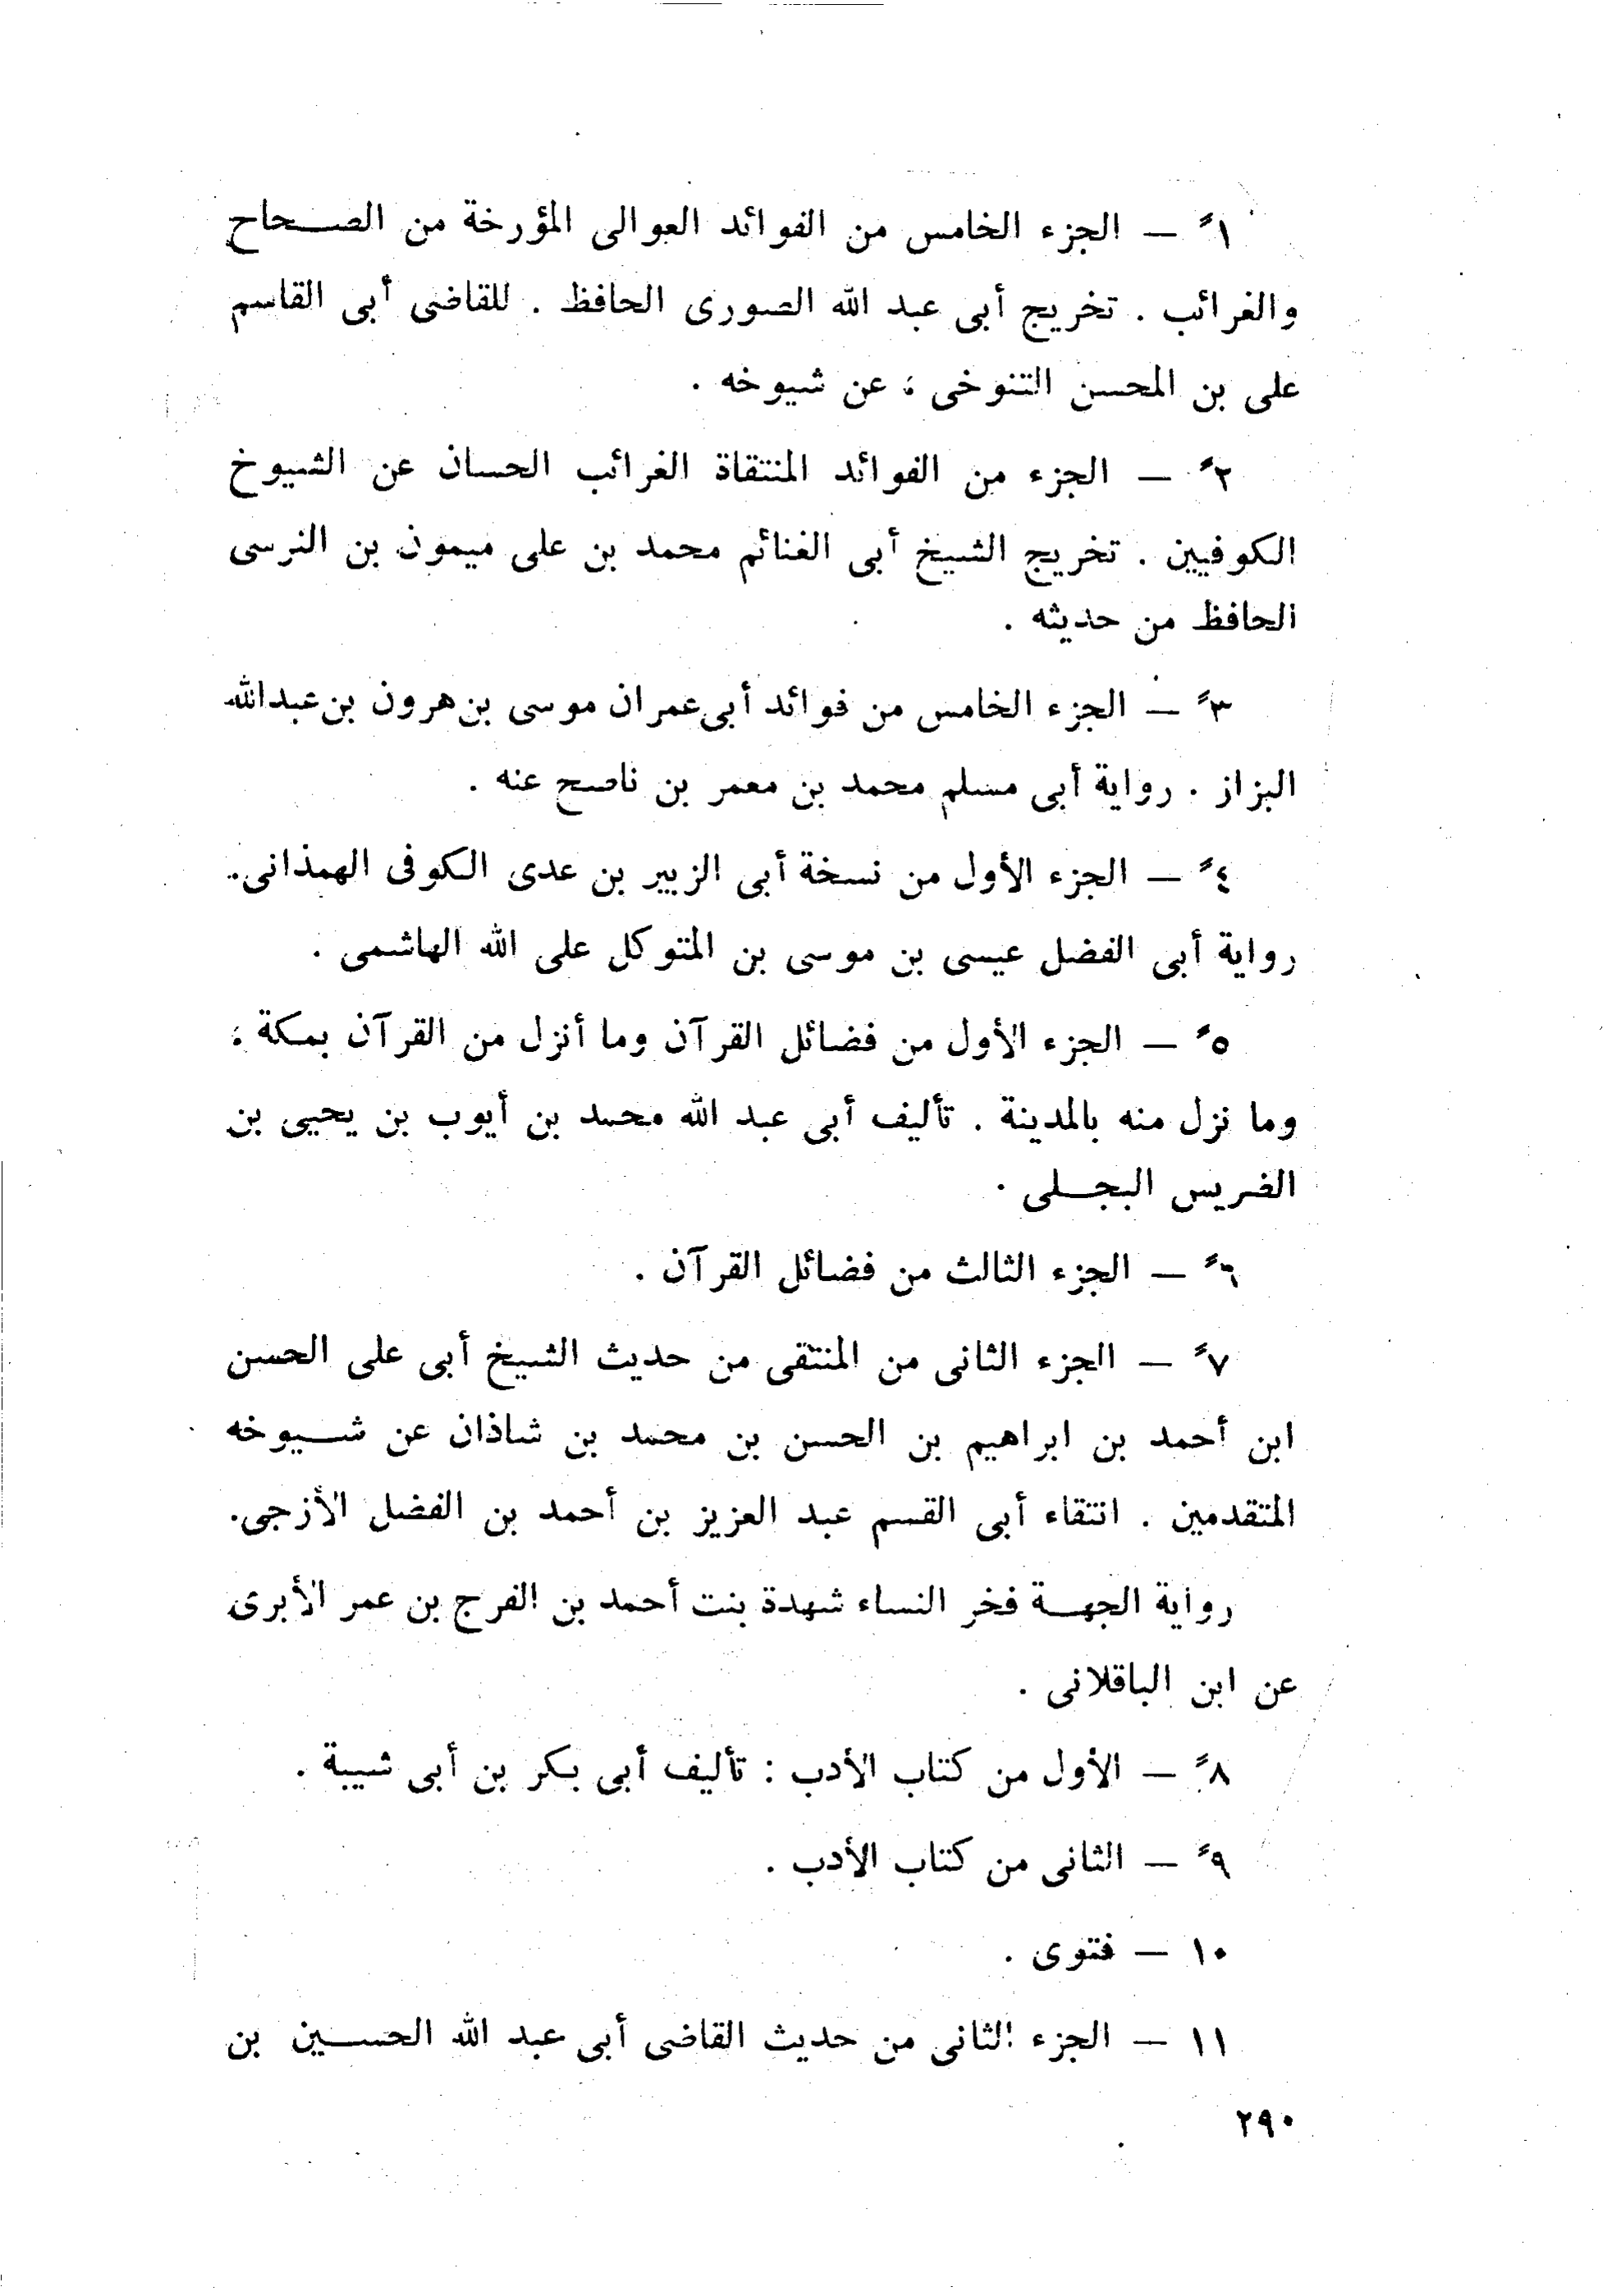 ١ً — الجزء الخامس من الفوائد العوالى المؤرخة من الصحاح
والغرائب . تخريج أبى عبد الله الصورى الحافظ . للقاضى أبى القاسم
على بن المحسن التنوخى ، عن شيوخه .
٢ً — الجزء من الفوائد المنتقاة الغرائب الحسان عن الشيوخ
الكوفيين . تخريج الشيخ أبى الغنائم محمد بن على ميمون بن النرسى
الحافظ من حديثه .
٣ً — الجزء الخامس من فوائد أبى عمران موسى بن هرون بن عبدالله
البزاز . رواية أبى مسلم محمد بن معمر بن ناصح عنه .
٤ً — الجزء الأول من نسخة أبى الزبير بن عدى الكوفى الهمذانى .
رواية أبى الفضل عيسى بن موسى بن المتوكل على الله الهاشمى .
٥ً — الجزء الأول من فضائل القرآن وما أنزل من القرآن بمكة ،
وما نزل منه بالمدينة . تأليف أبى عبد الله محمد بن أيوب بن يحيى بن
الضريس البجلى .
٦ً — الجزء الثالث من فضائل القرآن .
٧ً — الجزء الثانى من المنتقى من حديث الشيخ أبى على الحسن
ابن أحمد بن ابراهيم بن الحسن بن محمد بن شاذان عن شيوخه
المتقدمين . انتقاء أبى القسم عبد العزيز بن أحمد بن الفضل الأزجى .
رواية الجهة فخر النساء شهدة بنت أحمد بن الفرج بن عمر الأبرى
عن ابن الباقلانى .
٨ً — الأول من كتاب الأدب : تأليف أبى بكر بن أبى شيبة .
٩ً — الثانى من كتاب الأدب .
١٠ — فتوى .
١١ — الجزء الثانى من حديث القاضى أبى عبد الله الحسين بن
٢٩٠